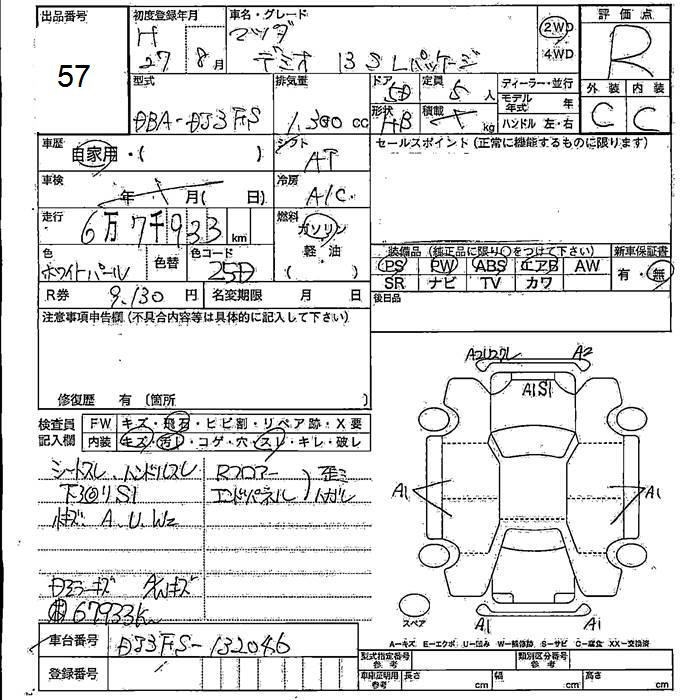 出品番号
57
初度登録年月
H
27 8月
車名・グレード
マツダ
デミオ 13S Lパッケージ
2WD
・
4WD
評価点
R
外装 内装
C C
型式
DBA-DJ3FS
排気量
1,300 cc
ドア
5D
形状
HB
定員
5 人
積載
kg
ディーラー・並行
モデル年式 年
ハンドル 左・右
車歴
自家用・( )
シフト
AT
セールスポイント (正常に機能するものに限ります)
車検
年 月( 日)
冷房
A/C
走行
6万7千933 km
燃料
ガソリン
軽・油
( )
色
ホワイトパール
色替
色コード
25D
R券 9,130 円
名変期限 月 日
装備品 (純正品に限り○をつけて下さい)
PS PW ABS エアB AW
SR ナビ TV カワ
新車保証書
有・無
後日品
注意事項申告欄 (不具合内容等は具体的に記入して下さい)
修復歴 有 〔箇所 〕
検査員記入欄
FW キズ・飛石・ヒビ割・リペア跡・X要
内装 キズ・汚レ・コゲ・穴・スレ・キレ・破レ
シートスレ ハンドルスレ
下回りS1
A、U、W2
Rフロアー
エンドパネル
歪ミ
マガル
Dミラーキズ
67933km
A2 A2
A1S1
A1 A1
A1 A1
スペア
A-キズ E-エクボ U-凹み W-補修跡 S-サビ C-腐食 XX-交換済
車台番号 DJ3FS-132046
登録番号
型式指定番号 参考
類別区分番号 参考
車庫証明用 参考
長さ cm 幅 cm 高さ cm